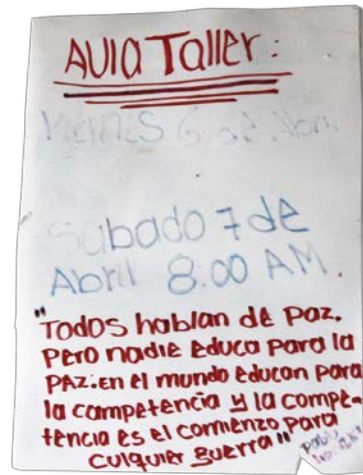 AUlA Taller:
Sabado 7 de
Abril 8:00 AM.
"Todos hablan de Paz.
Pero nadie educa para la
PAZ. en el mundo educan para
la competencia y la compe-
tencia es el comienzo para
culquier guerra"